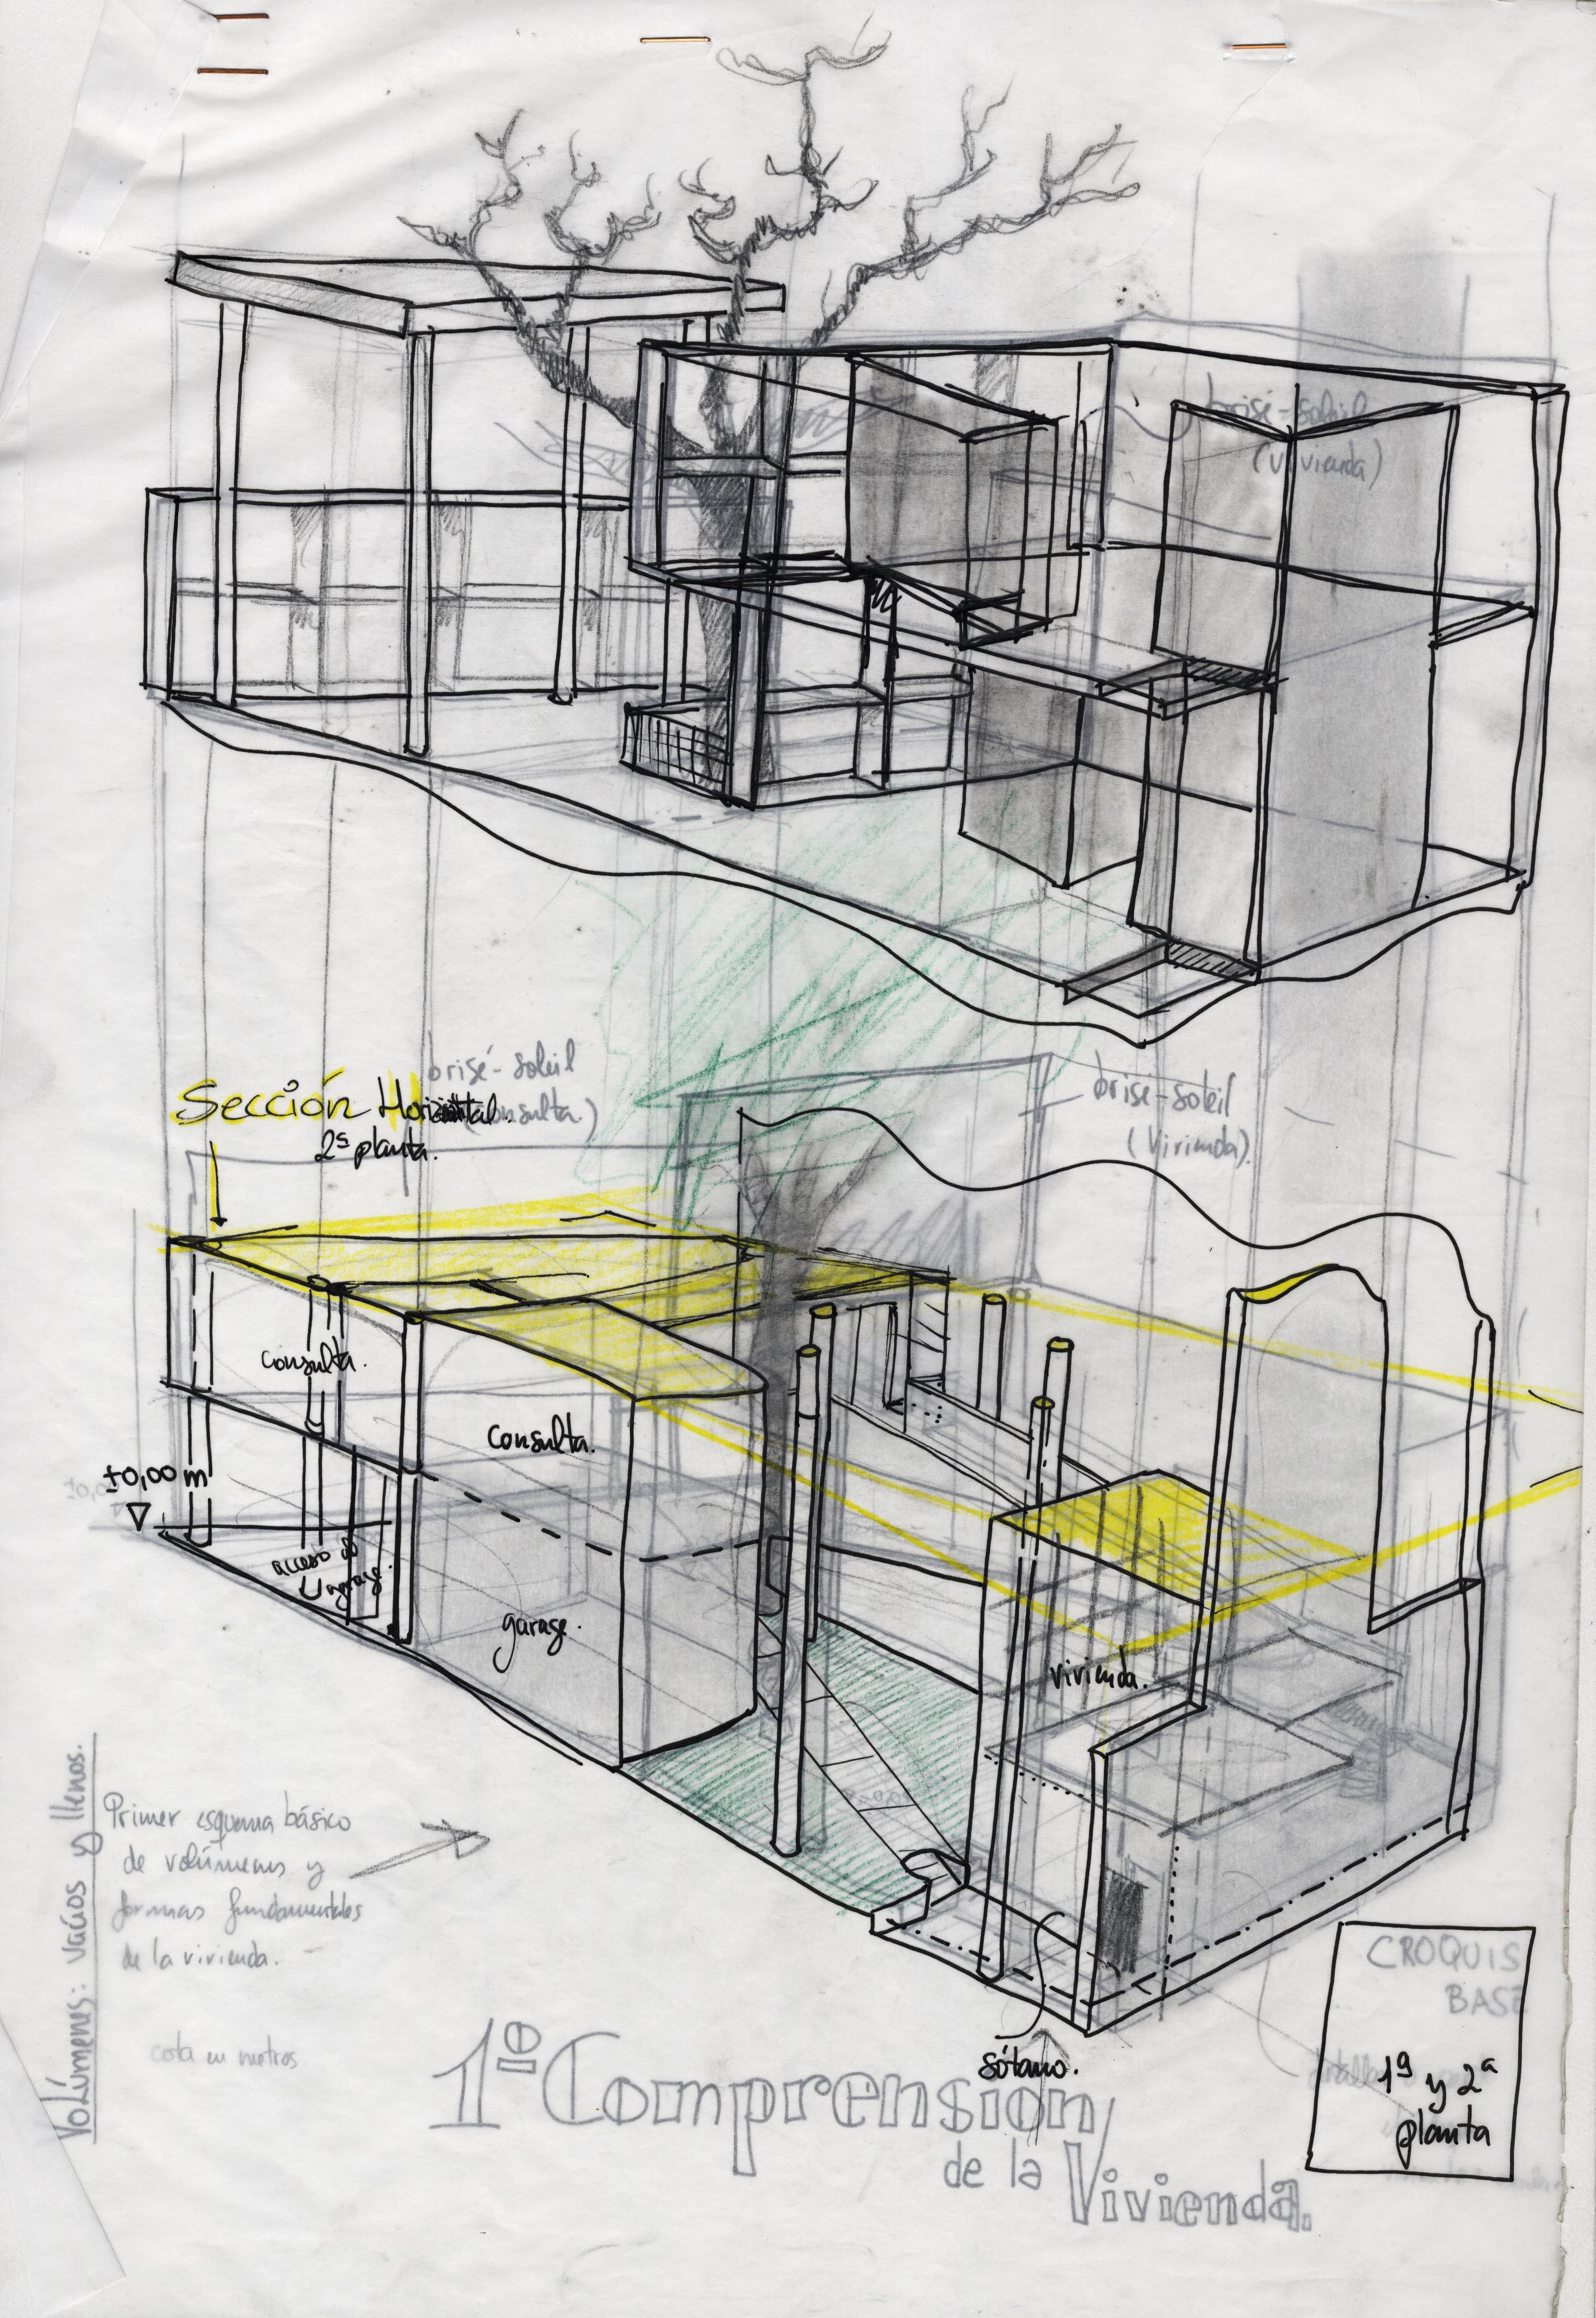 brisé-soleil
(vivienda)
brisé-soleil
(consulta.)
Sección Horizontal.
2ª planta.
brise-soleil
(vivienda).
consulta.
consulta.
±0,00 m
acceso al
garage.
garage.
vivienda.
Volúmenes: vacíos y llenos.
Primer esquema básico
de volúmenes y
formas fundamentales
de la vivienda.
cota en metros
sótano.
1º Comprensión
de la Vivienda.
CROQUIS
BASE
1ª y 2ª
planta